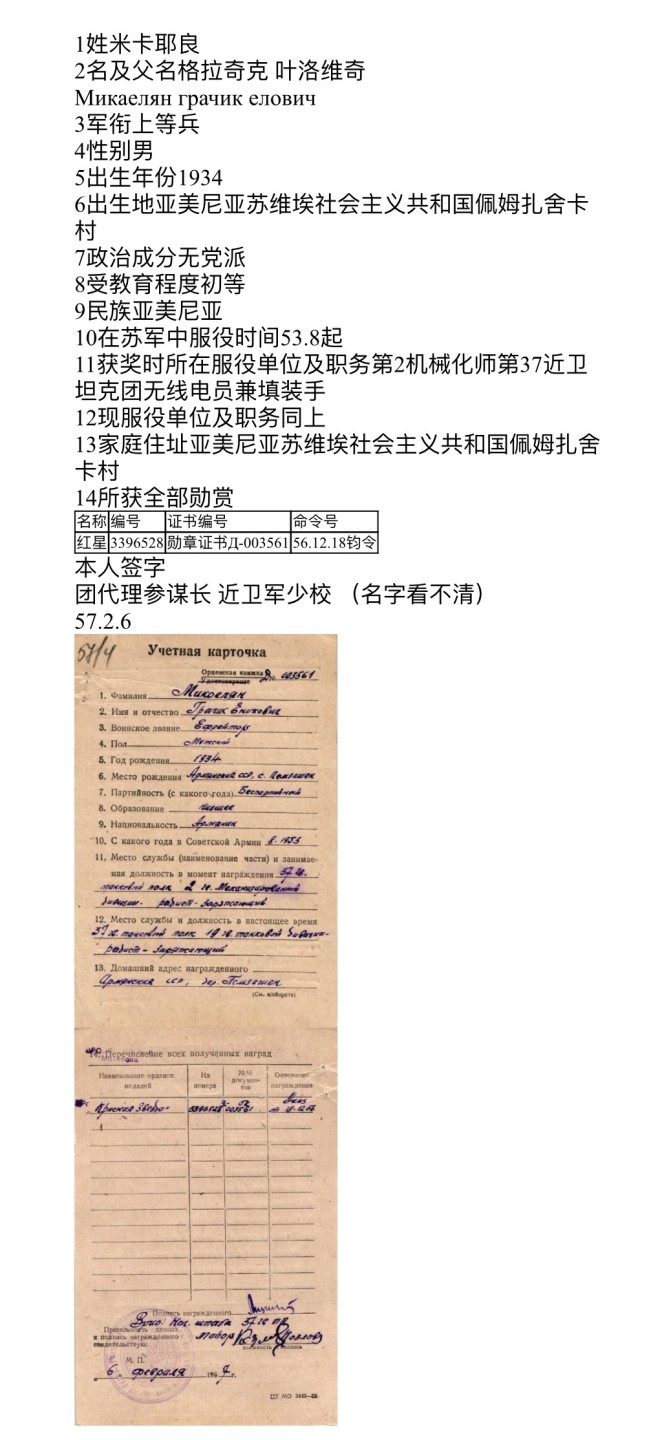 1姓米卡耶良
2名及父名格拉奇克 叶洛维奇
Микаелян грачик елович
3军衔上等兵
4性别男
5出生年份1934
6出生地亚美尼亚苏维埃社会主义共和国佩姆扎舍卡
村
7政治成分无党派
8受教育程度初等
9民族亚美尼亚
10在苏军中服役时间53.8起
11获奖时所在服役单位及职务第2机械化师第37近卫
坦克团无线电员兼填装手
12现服役单位及职务同上
13家庭住址亚美尼亚苏维埃社会主义共和国佩姆扎舍
卡村
14所获全部勋赏
名称 编号 证书编号 命令号
红星 3396528 勋章证书Д-003561 56.12.18钧令
本人签字
团代理参谋长 近卫军少校 （名字看不清）
57.2.6
57/4
Учетная карточка
Орденская книжка Д № 003561
Удостоверение
1. Фамилия Микоелян
2. Имя и отчество Грачик
3. Воинское звание Ефрейтор
4. Пол Мужской
5. Год рождения 1934
6. Место рождения Армянская ССР, с. Пемзашен
7. Партийность (с какого года) Беспартийный
8. Образование низшее
9. Национальность Армянин
10. С какого года в Советской Армии 8.1953
11. Место службы (наименование части) и занимае-
мая должность в момент награждения 37 гв.
танковый полк 2 гв. Механизированной
дивизии. радист-заряжающий
12. Место службы и должность в настоящее время
37 гв танковый полк 19 гв. танковой дивизии-
радист-заряжающий
13. Домашний адрес награжденного
Армянская ССР, дер. Пемзашен
(См. на обороте)
14. Перечисление всех полученных наград
Наименование орденов, медалей Их номера №№ документов Основание награждения
"Красная Звезда" 3396528 Д 003561 Указ от 18.12.56
Подпись награжденного
Врио. Нач. штаба 37 гв тп
Правильность данных
и подпись награжденного
свидетельствую: майор
М. П.
6 февраля 1957 г.